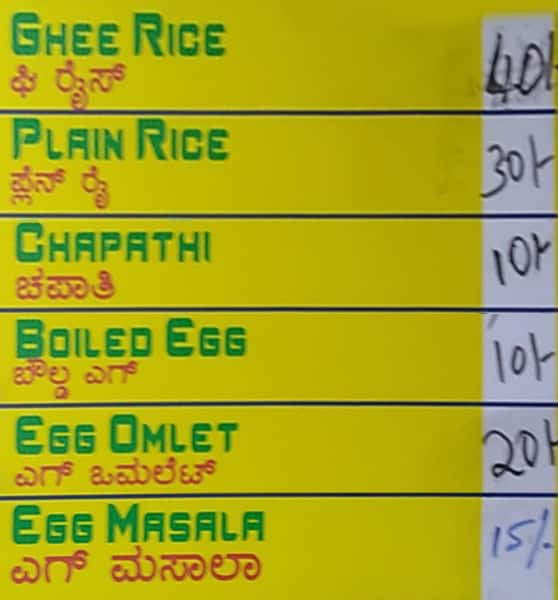 GHEE RICE 40/-
ಘಿ ರೈಸ್
PLAIN RICE 30/-
ಪ್ಲೆನ್ ರೈ
CHAPATHI 10/-
ಚಪಾತಿ
BOILED EGG 10/-
ಬೌಲ್ಡ ಎಗ್
EGG OMLET 20/-
ಎಗ್ ಒಮಲೆಟ್
EGG MASALA 15/-
ಎಗ್ ಮಸಾಲಾ